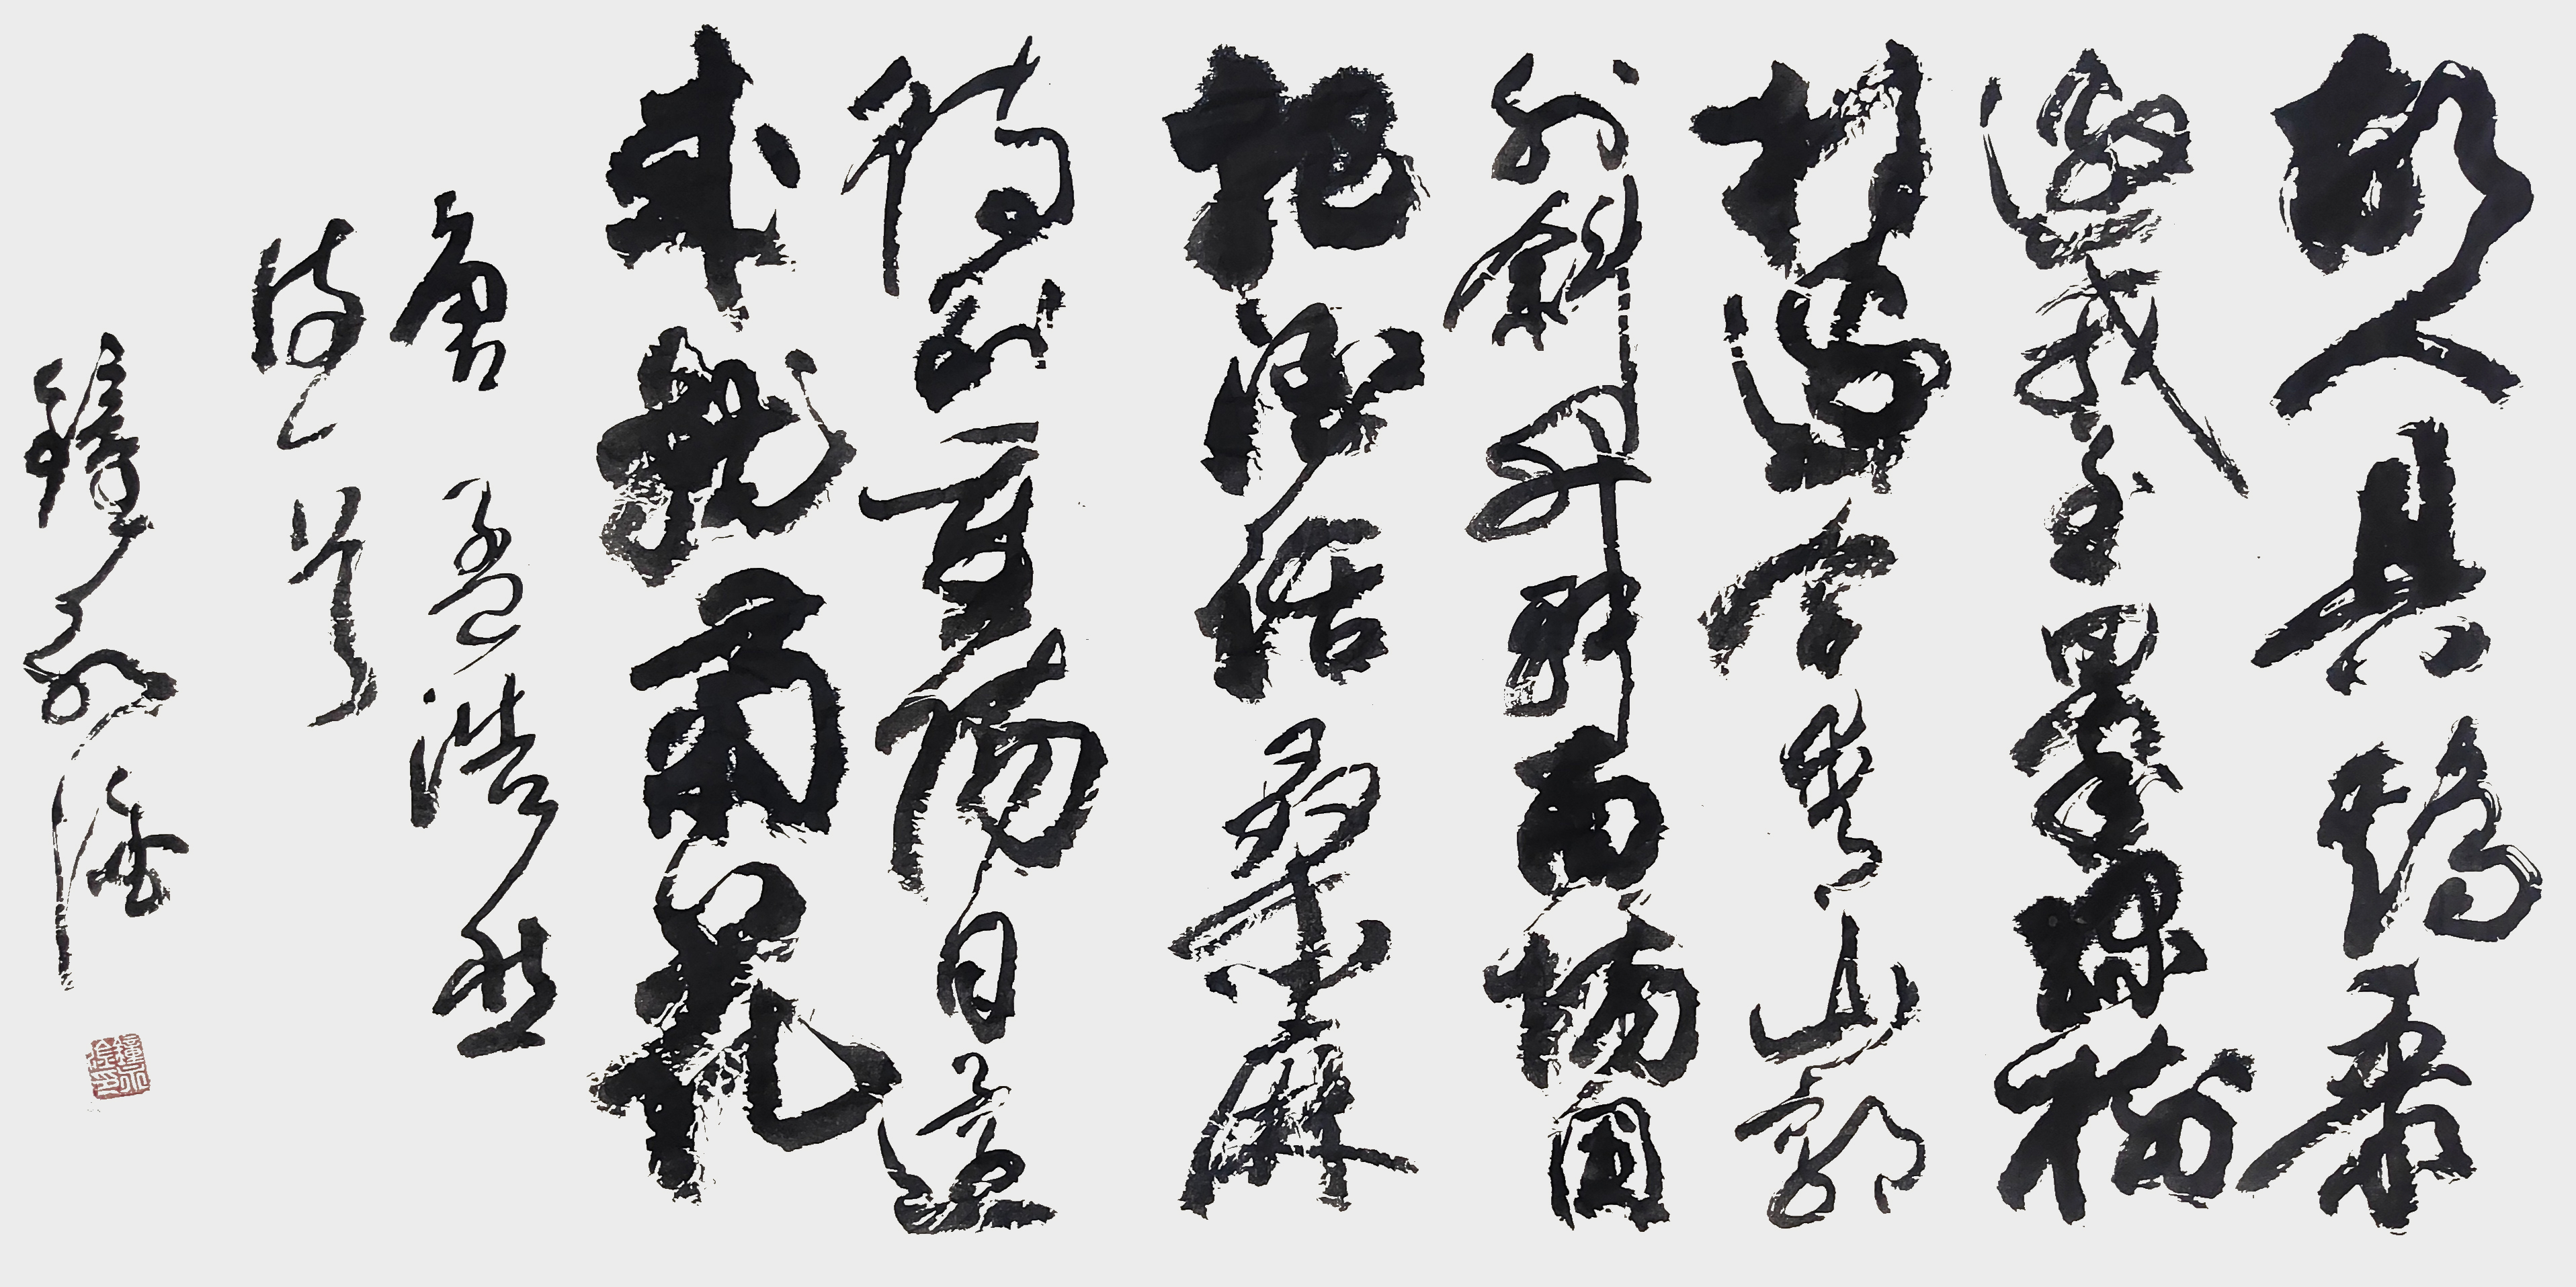 故人具鷄黍
邀我至田家綠樹
村邊合青山郭
外斜開軒面場圃
把酒話桑麻
待到重陽日還
來就菊花
唐孟浩然
詩一首
鐘永